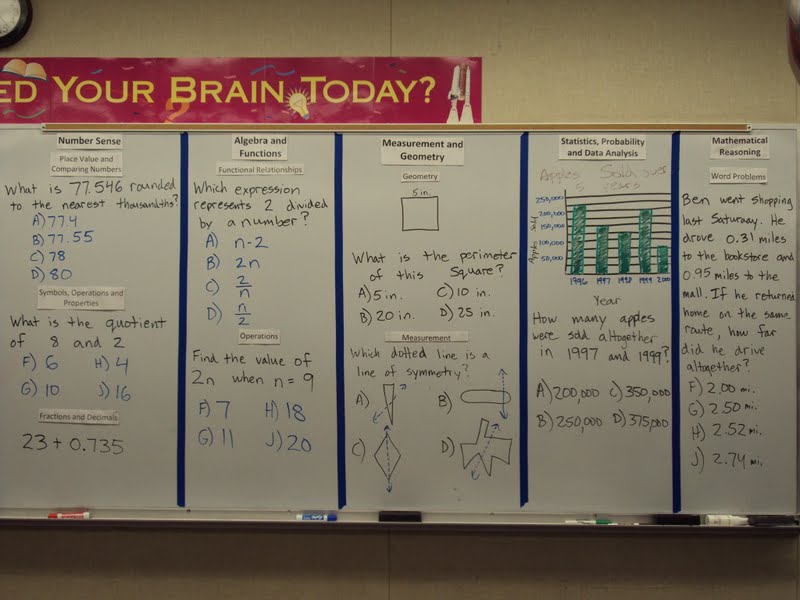 ED YOUR BRAIN TODAY?
Number Sense
Place Value and
Comparing Numbers
What is 77.546 rounded
to the nearest thousandths?
A) 77.4
B) 77.55
C) 78
D) 80
Symbols, Operations and
Properties
What is the quotient
of 8 and 2
F) 6 H) 4
G) 10 J) 16
Fractions and Decimals
23 + 0.735
Algebra and
Functions
Functional Relationships
Which expression
represents 2 divided
by a number?
A) n-2
B) 2n
C) 2/n
D) n/2
Operations
Find the value of
2n when n = 9
F) 7 H) 18
G) 11 J) 20
Measurement and
Geometry
Geometry
5 in.
What is the perimeter
of this square?
A) 5 in. C) 10 in.
B) 20 in. D) 25 in.
Measurement
Which dotted line is a
line of symmetry?
A) B)
C) D)
Statistics, Probability
and Data Analysis
Apples Sold over
5 years
Apples Sold
250,000
200,000
150,000
100,000
50,000
1996 1997 1998 1999 2000
Year
How many apples
were sold altogether
in 1997 and 1999?
A) 200,000 C) 350,000
B) 250,000 D) 375,000
Mathematical
Reasoning
Word Problems
Ben went shopping
last Saturday. He
drove 0.31 miles
to the bookstore and
0.95 miles to the
mall. If he returned
home on the same
route, how far
did he drive
altogether?
F) 2.00 mi.
G) 2.50 mi.
H) 2.52 mi.
J) 2.74 mi.